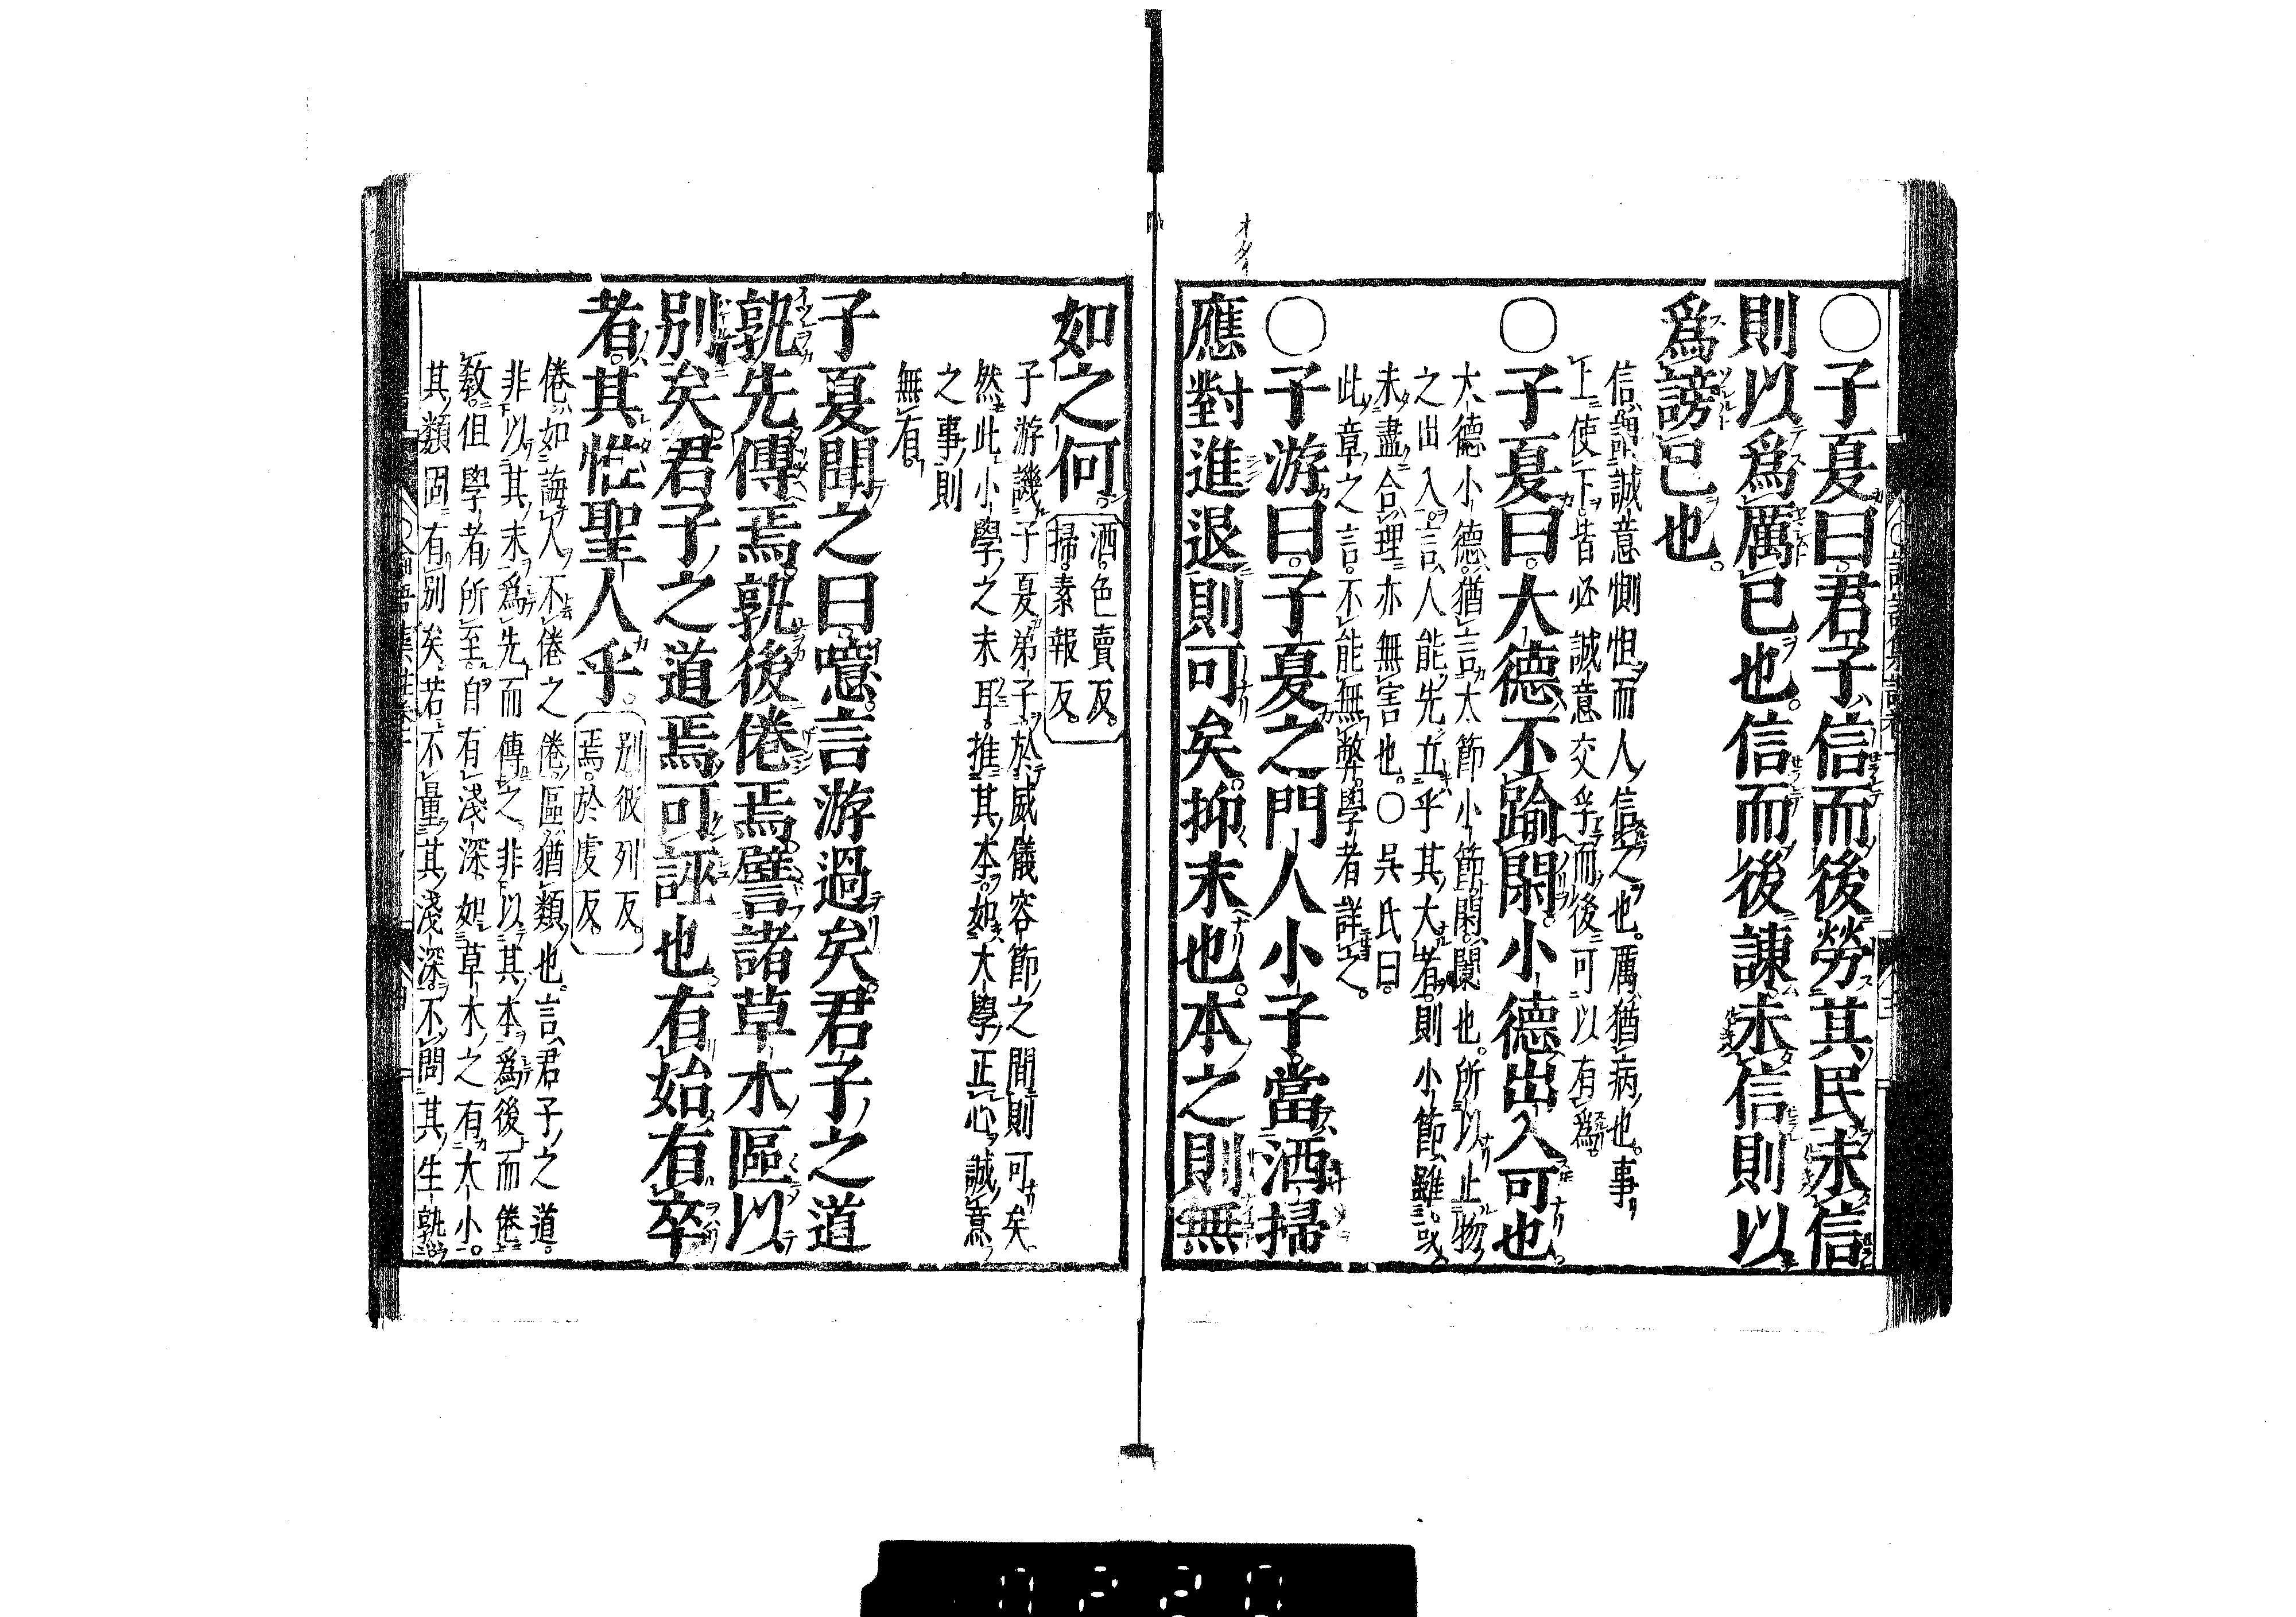 〇子夏曰。君子信而後勞其民未信
則以爲厲已也。信而後諫。未信則以
爲謗已也。
信謂誠意惻怛而人信之也。厲猶病也。事
上使下。皆必誠意交孚而後可以有爲。
〇子夏曰。大德不踰閑。小德出入可也
大德小德猶言大節小節。閑闌也。所以止物
之出入。言人能先立乎其大者。則小節雖或
未盡合理亦無害也。〇吳氏曰。
此章之言。不能無弊。學者詳之。
〇子游曰。子夏之門人小子。當洒掃
應對進退則可矣。抑末也。本之則無
如之何。
洒。色賣反。
掃。素報反。
子游譏子夏弟子於威儀容節之間則可矣。
然此小學之末耳。推其本。如大學正心誠意
之事則
無有。
子夏聞之曰噫。言游過矣。君子之道
孰先傳焉。孰後倦焉。譬諸草木區以
別矣。君子之道焉可誣也。有始有卒
者。其惟聖人乎。
別彼列反。
焉。於虔反。
倦如誨人不倦之倦。區猶類也。言君子之道。
非以其末爲先而傳之。非以其本爲後而倦
教。但學者所至。自有淺深。如草木之有大小。
其類固有別矣。若不量其淺深。不問其生孰